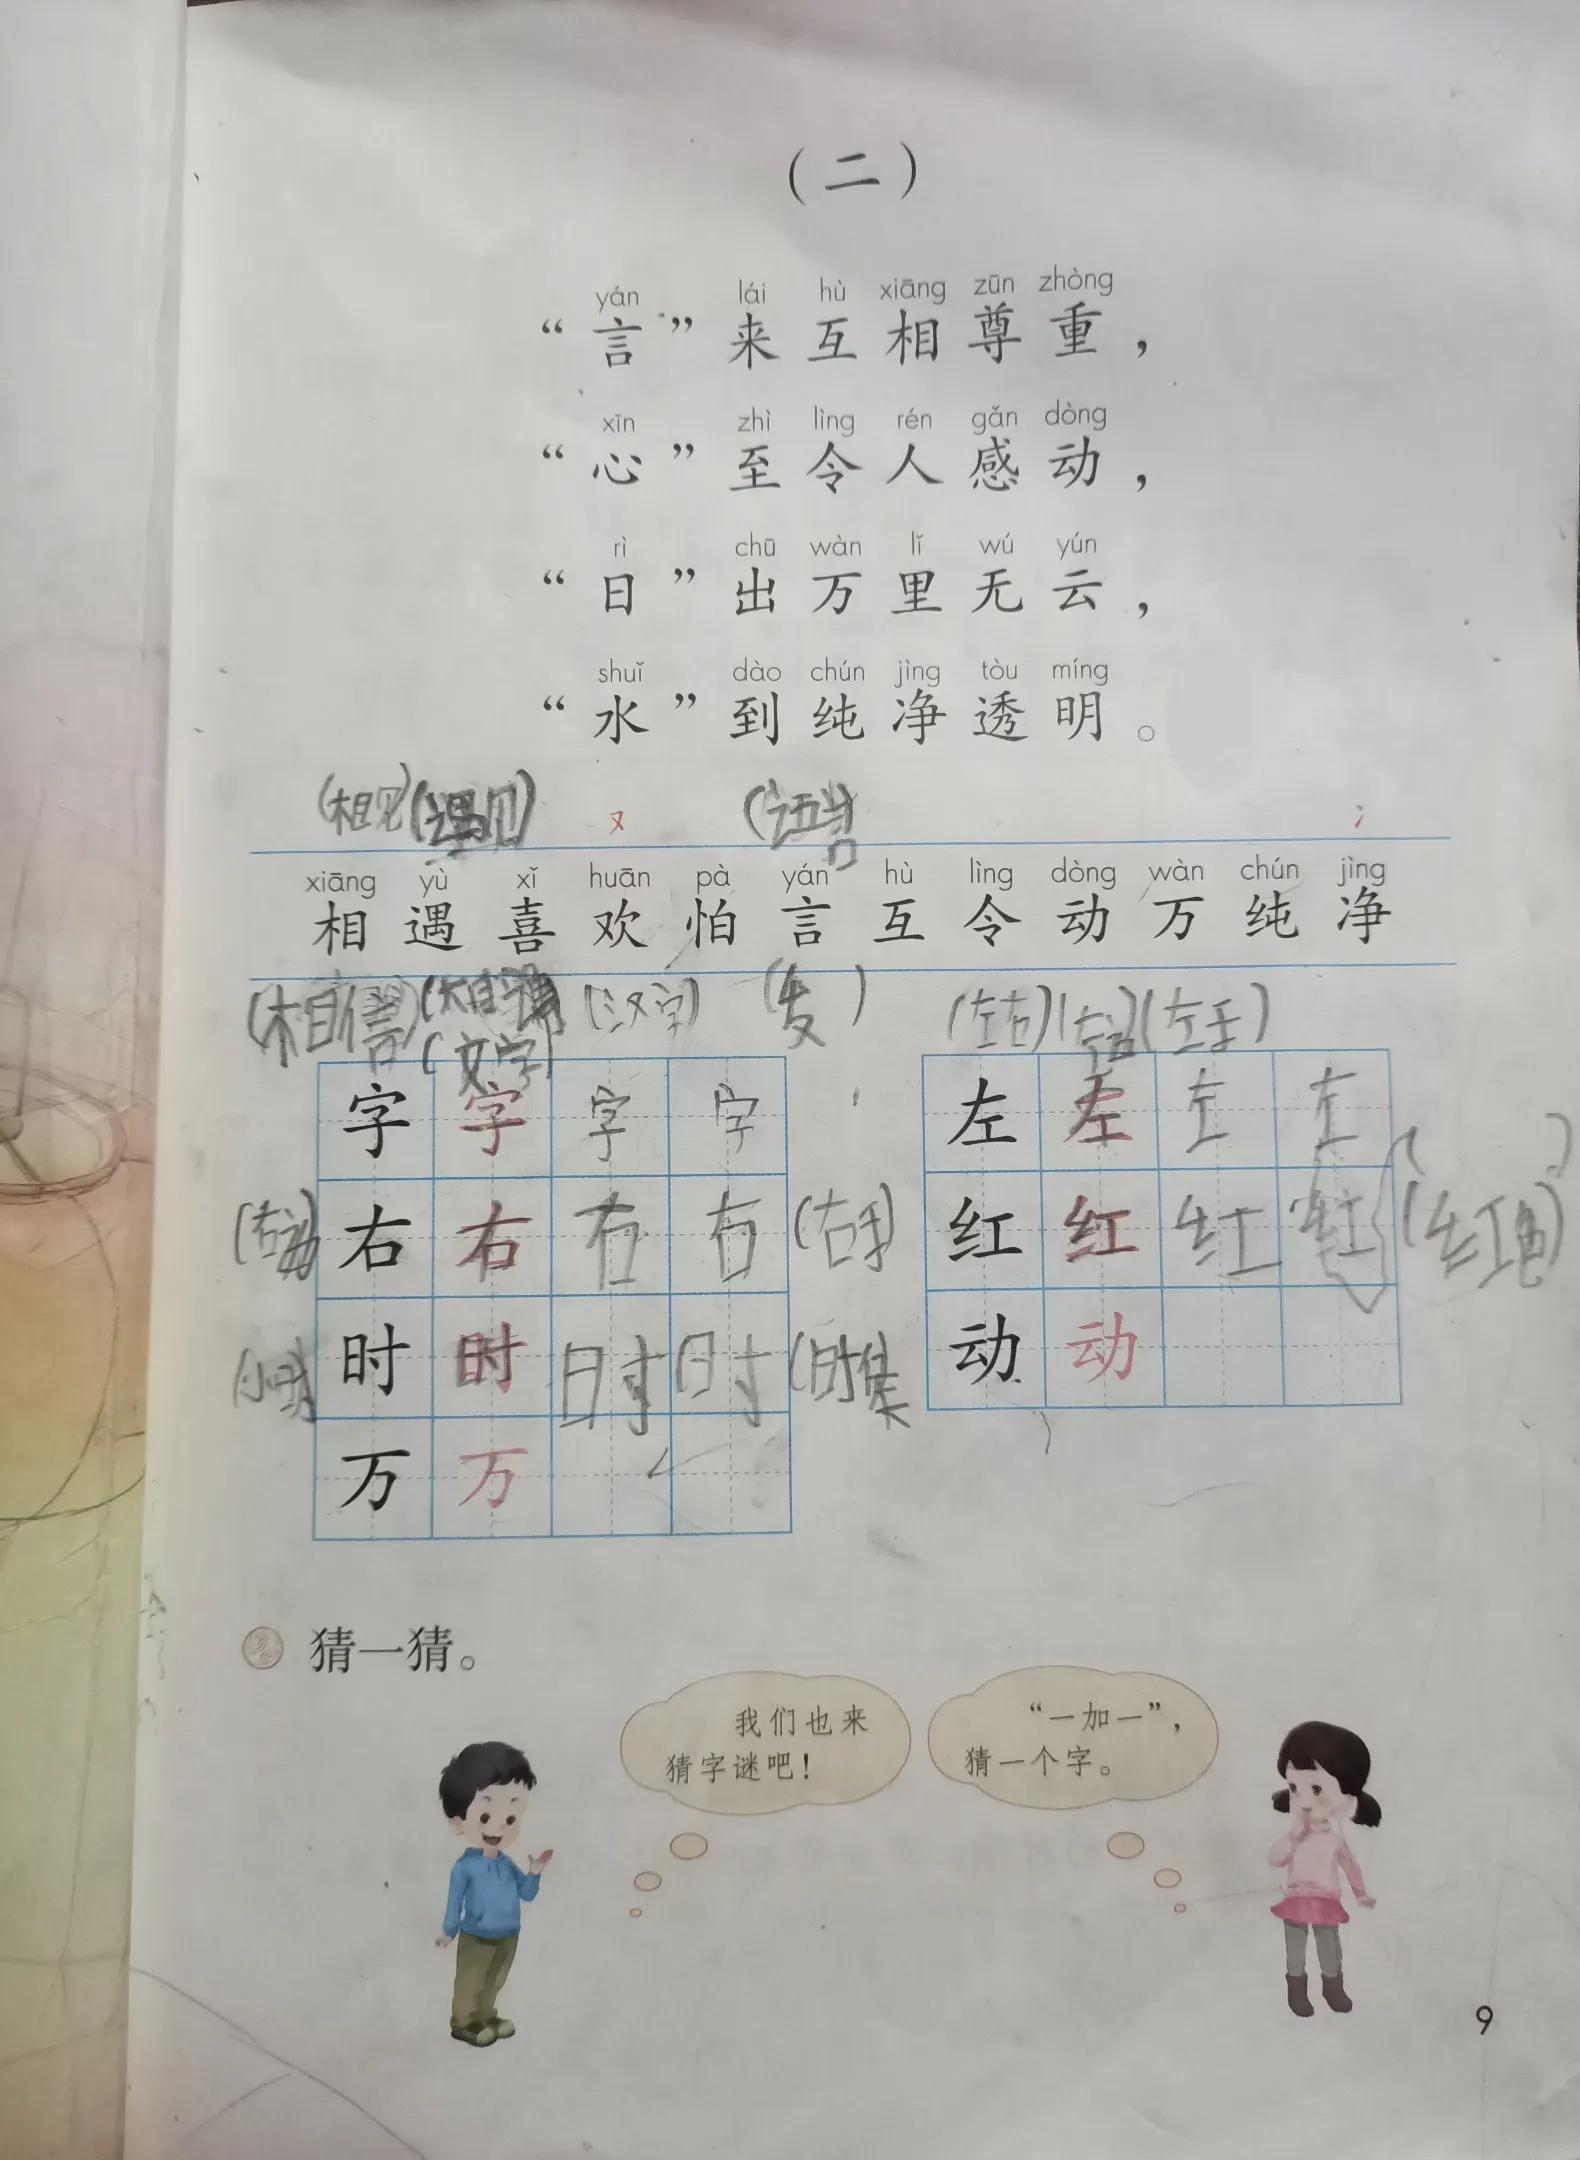 （二）
yán lái hù xiāng zūn zhòng
“言”来互相尊重，
xīn zhì lìng rén gǎn dòng
“心”至令人感动，
rì chū wàn lǐ wú yún
“日”出万里无云，
shuǐ dào chún jìng tòu míng
“水”到纯净透明。
(相见)(遇见) 又 (语言) 冫
xiāng yù xǐ huān pà yán hù lìng dòng wàn chún jìng
相遇喜欢怕言互令动万纯净
(相信)(相遇 (汉字) ( ) (左右)(左边)(左手)
(文字)
字字字字 左左左左
(右边) 右右右右 (右手) 红红红红 (红色)
(小时) 时时时时 (时候 动动
万万
猜一猜。
我们也来
猜字谜吧！
“一加一”，
猜一个字。
9